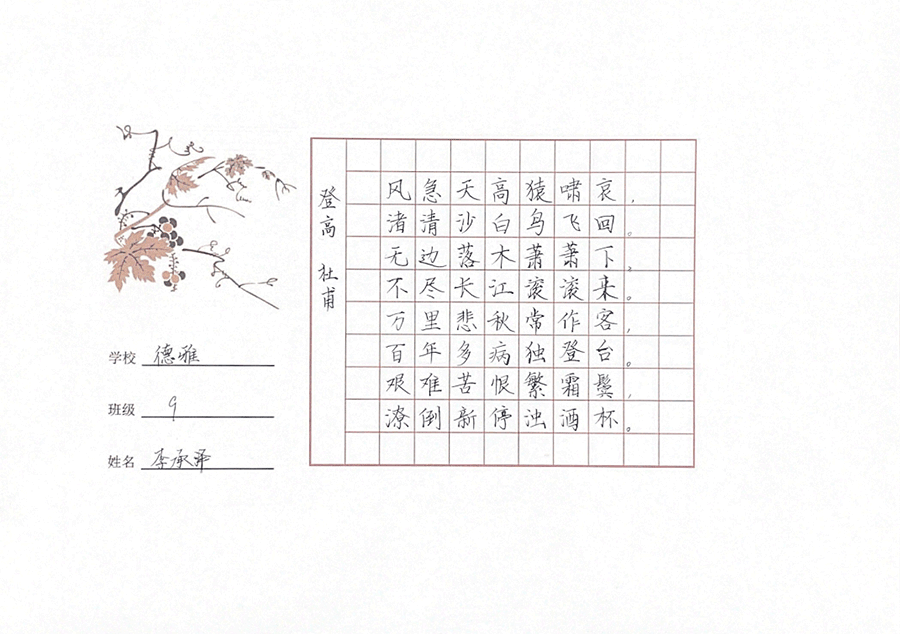 登高 杜甫
风急天高猿啸哀，
渚清沙白鸟飞回。
无边落木萧萧下，
不尽长江滚滚来。
万里悲秋常作客，
百年多病独登台。
艰难苦恨繁霜鬓，
潦倒新停浊酒杯。
学校 德雅
班级 9
姓名 李承泽